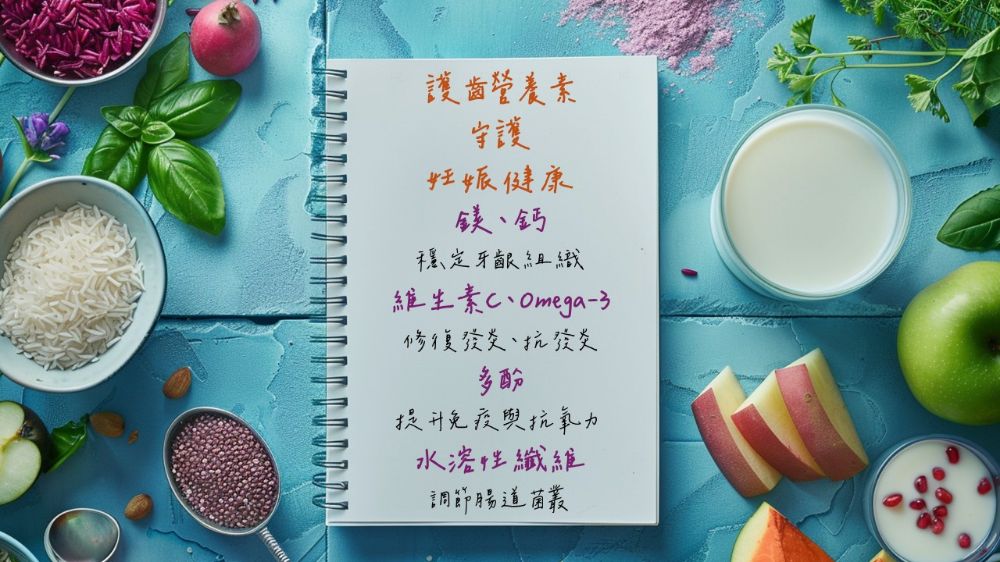 護齒營養素
守護
妊娠健康
鎂、鈣
穩定牙齦組織
維生素C、Omega-3
修復發炎、抗發炎
多酚
提升免疫與抗氧力
水溶性纖維
調節腸道菌叢